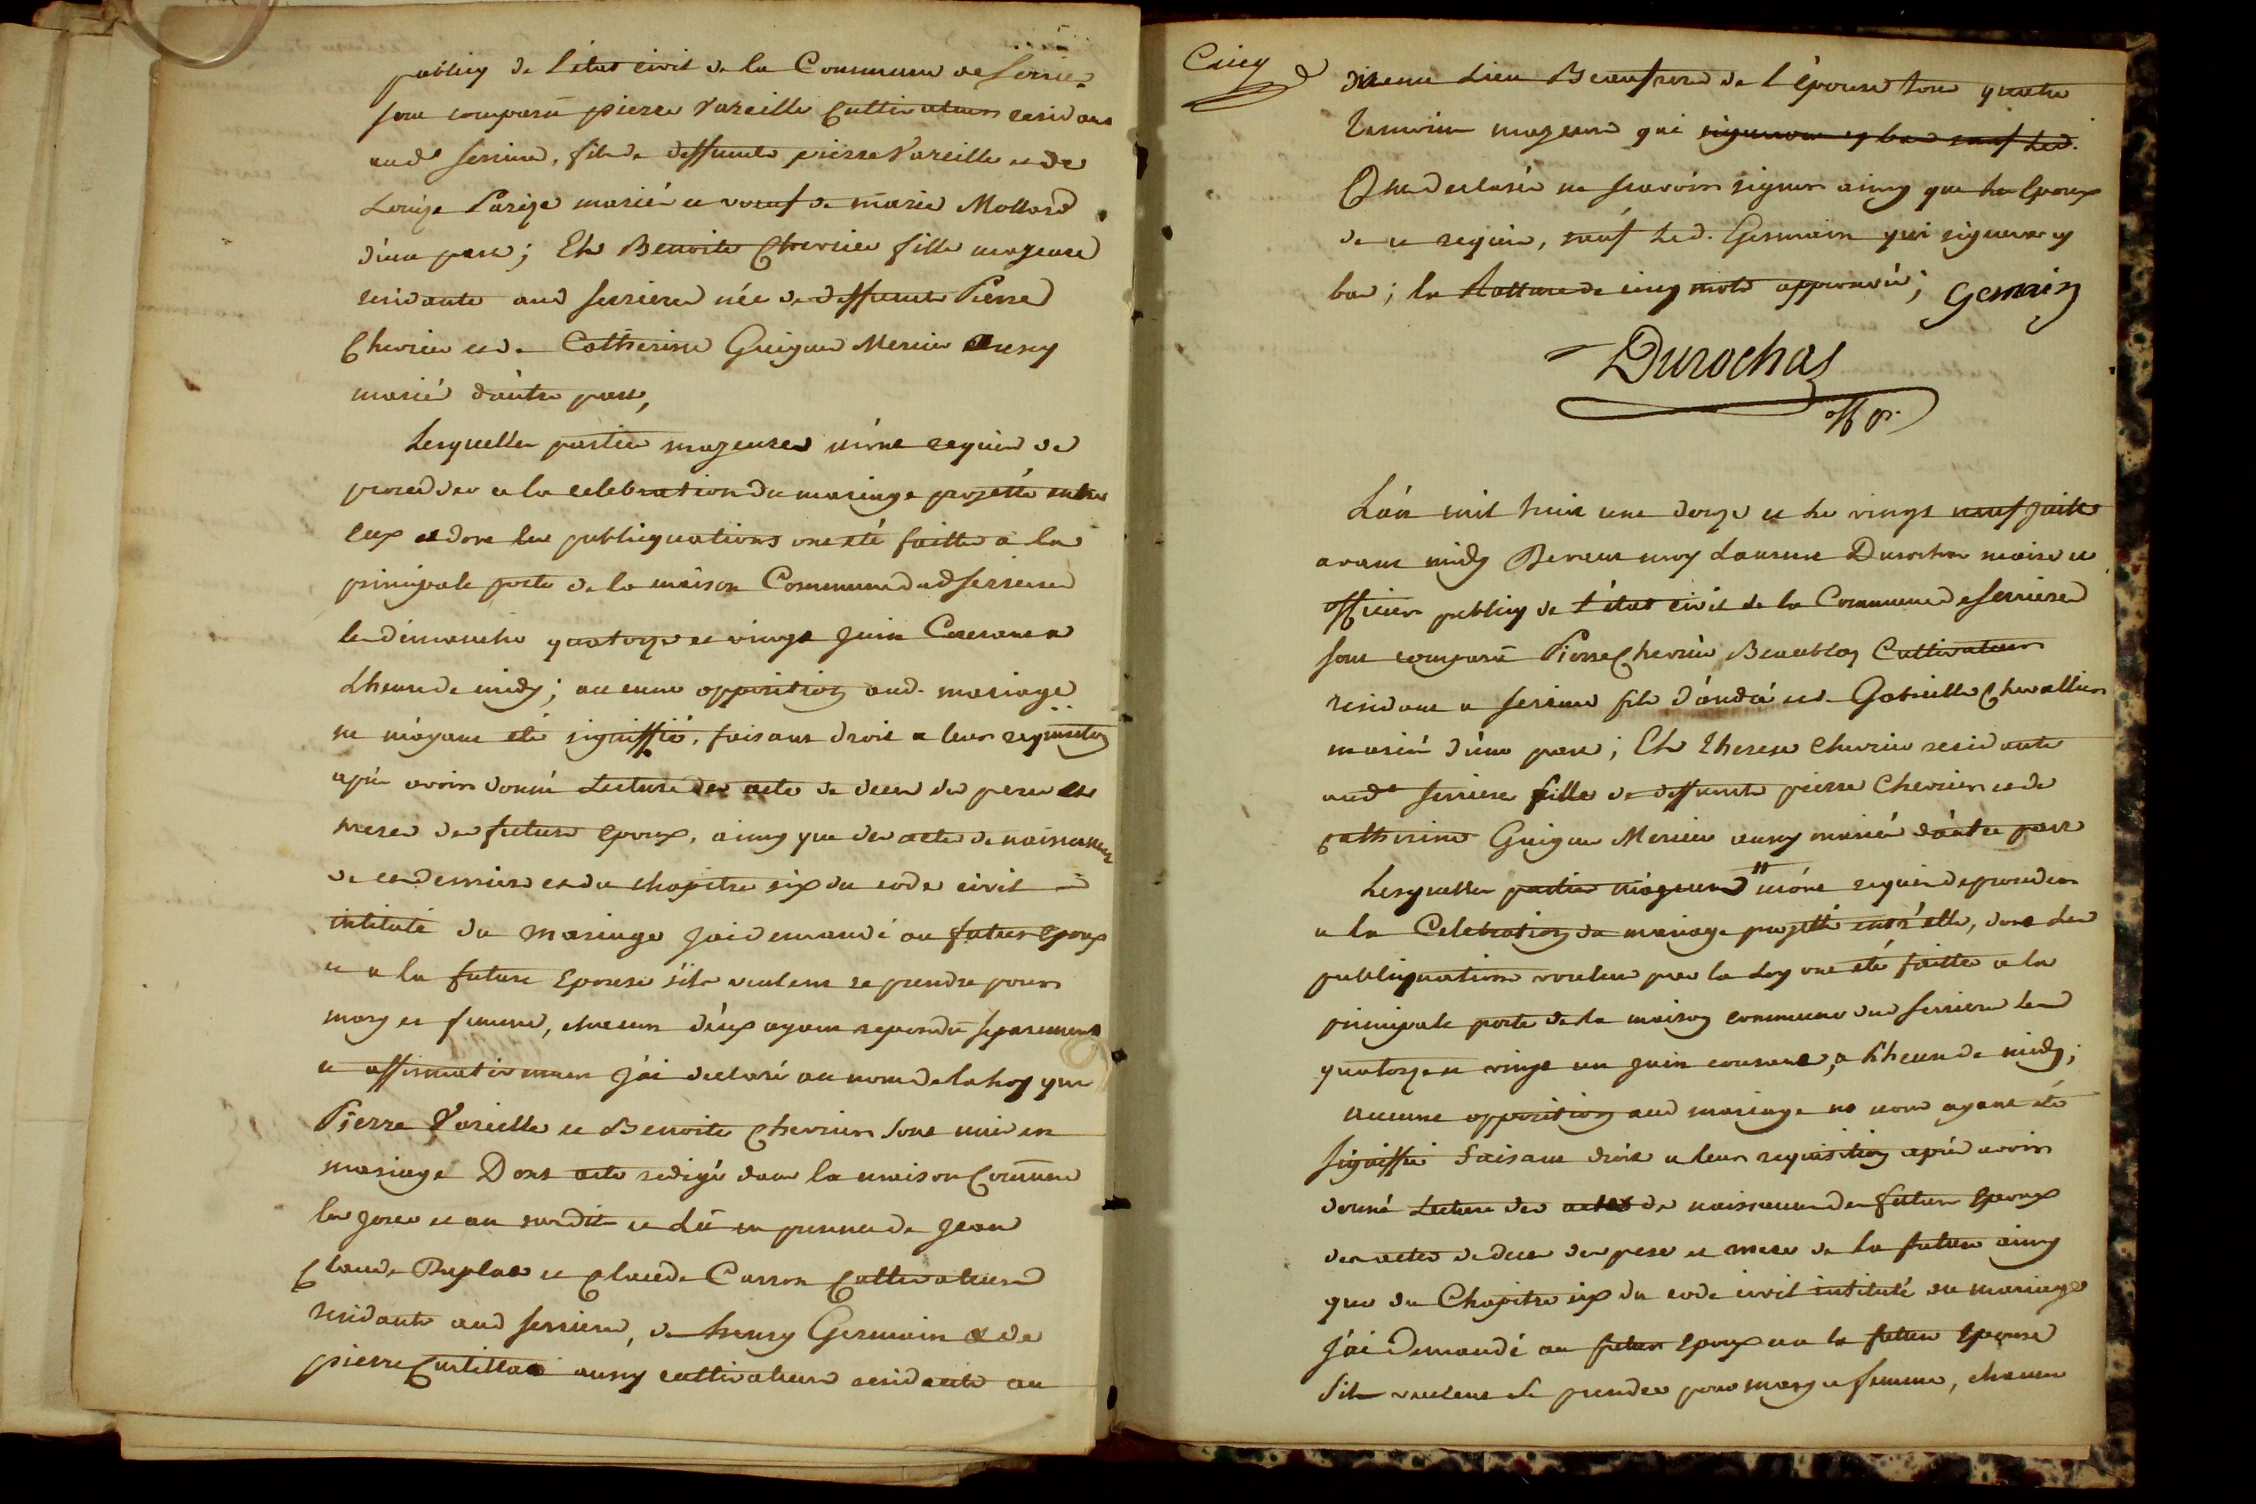 publicq de l'état civil de la Commune de Serrie=
sont comparu pierre Vareille Cultivateur residant
aud.t Serriere, fils de deffunts pierre Vareille et de
Louize Parize mariés et voeuf de marie Mollard
d'une part; Et Benoite Chevrier fille majeure
residante aud Serriere née de deffunts Pierre
Chevrier et de Catherine Guigue Merier aussy
mariés d'autre part,
Lesquelles parties majeures m'ont requis de
proceder a la celebration du mariage projetté entre
eux et dont les publiquations ont été faittes a la
principale porte de la maison Commune dud Serriere
les dimanche quatorze et vingt juin Courant a
L'heure de midy; aucune opposition aud. mariage
ne m'ayant été signiffié, faisant droit a leur requisition
après avoir donné Lecture des actes de deces des peres et
meres des futurs Epoux, ainsy que des actes de naissances
de ces derniers et du chapitre six du code civil
intitulé du mariage jai demandé au futur Epoux
et a la future Epouse s'ils veulent se prendre pour
mary et femme, chacun d'eux ayant repondu separement
et affirmativement j'ai declaré au nom de la loy que
Pierre Vareille et Benoite Chevrier sont unis en
mariage Dont acte redigé dans la maison Commune
les jours et an susdits et Lû en presence de jean
Claude Duplas et Claude Carron Cultivateurs
residants aud Serriere, de henry Germain et de
pierre Curtillat aussy cultivateurs residants au
Cinq
dit lieu Beaufrere de l'épouse tous quatre
temoins majeurs qui signeront cy bas sauf led.
Ont declarés ne scavoir signer ainsy que les Epoux
de ce requis, sauf led. Germain qui signera cy
bas; la Ratture de cinq mots approuvée; Germain
Durochas
L'an mil huit cent douze et le vingt neuf juin
avant midy Pardevant moy Laurent Durochas maire et
officier publicq de l'état civil de la Commune de Serriere
sont comparu Pierre Chevrier Cultivateur
residant a Serriere fils d'andré et de Gabrielle Chevallier
mariés d'une part; Et Therese Chevrier residante
aud.t Serriere fille de deffunts pierre Chevrier et de
Catherine Guigue Merier aussy mariés d'autre part
Lesquelles parties majeures m'ont requis de proceder
a la Celebration du mariage projetté entr'elles, dont les
publiquations voulues par la Loy ont été faittes a la
principale porte de la maison commune dud Serriere les
quatorze et vingt un juin courant, a l'heure de midy;
aucune opposition aud mariage ne nous ayant été
signiffié faisant droit a leur requisition après avoir
donné Lecture des actes de naissances des futurs Epoux
des actes de deces des pere et mere de la future ainsy
que du Chapitre six du code civil intitulé du mariage
j'ai demandé au futur Epoux et a la future Epouse
S'ils veulent se prendre pour mary et femme, chacun